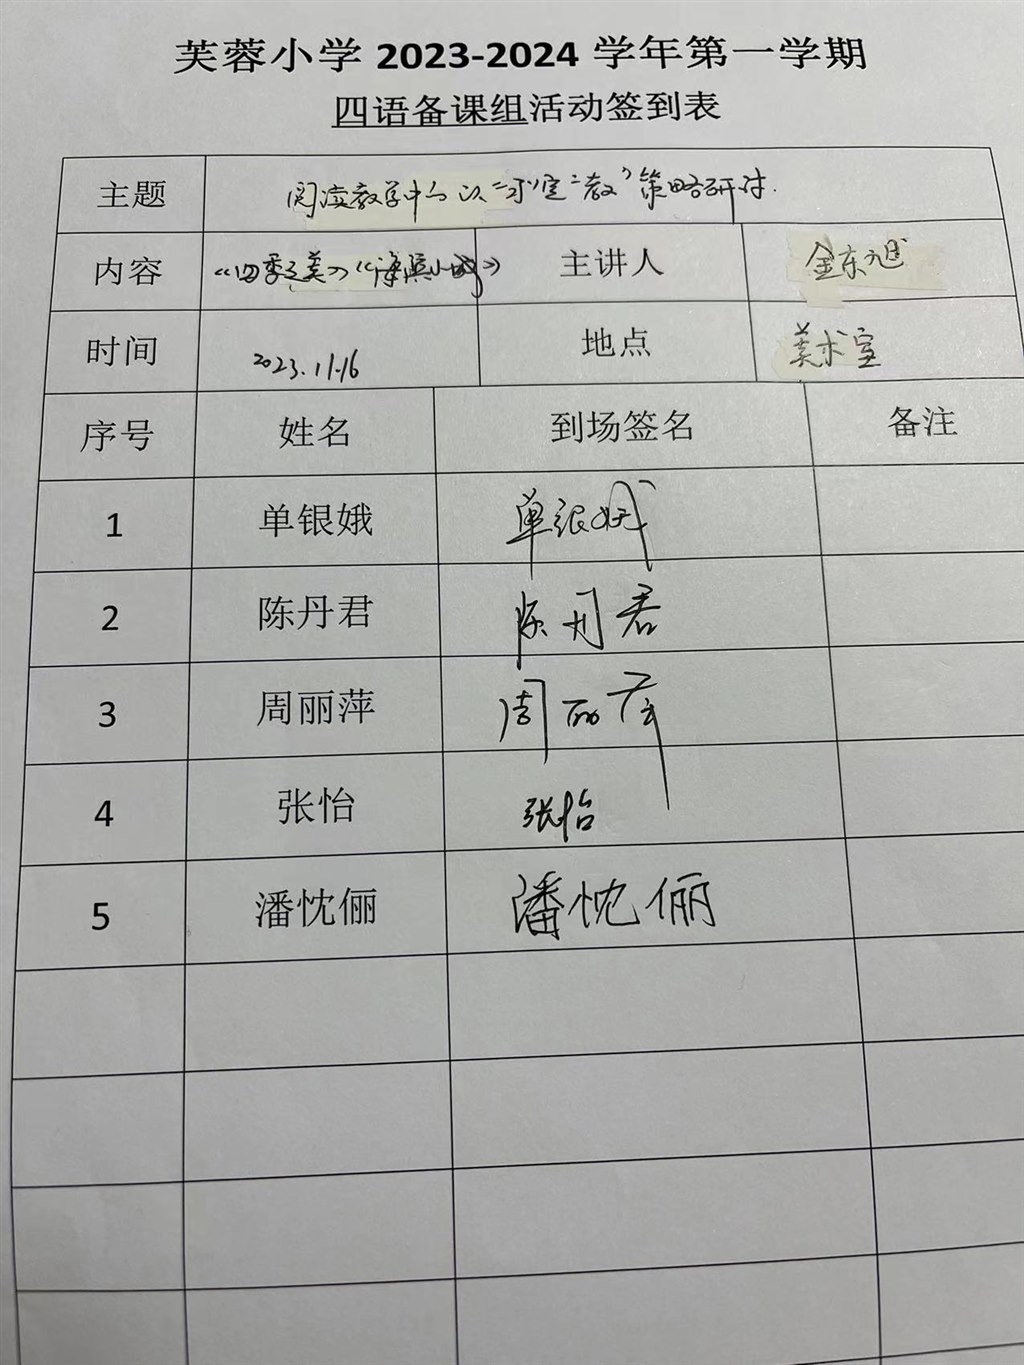 芙蓉小学 2023-2024 学年第一学期
四语备课组活动签到表
主题 阅读教学中 以 定 教”策略研讨.
内容 《四季之美》《海滨小城》 主讲人 金东旭
时间 2023.11.16 地点 美术室
序号 姓名 到场签名 备注
1 单银娥 单银娥
2 陈丹君 陈丹君
3 周丽萍 周丽萍
4 张怡 张怡
5 潘忱俪 潘忱俪